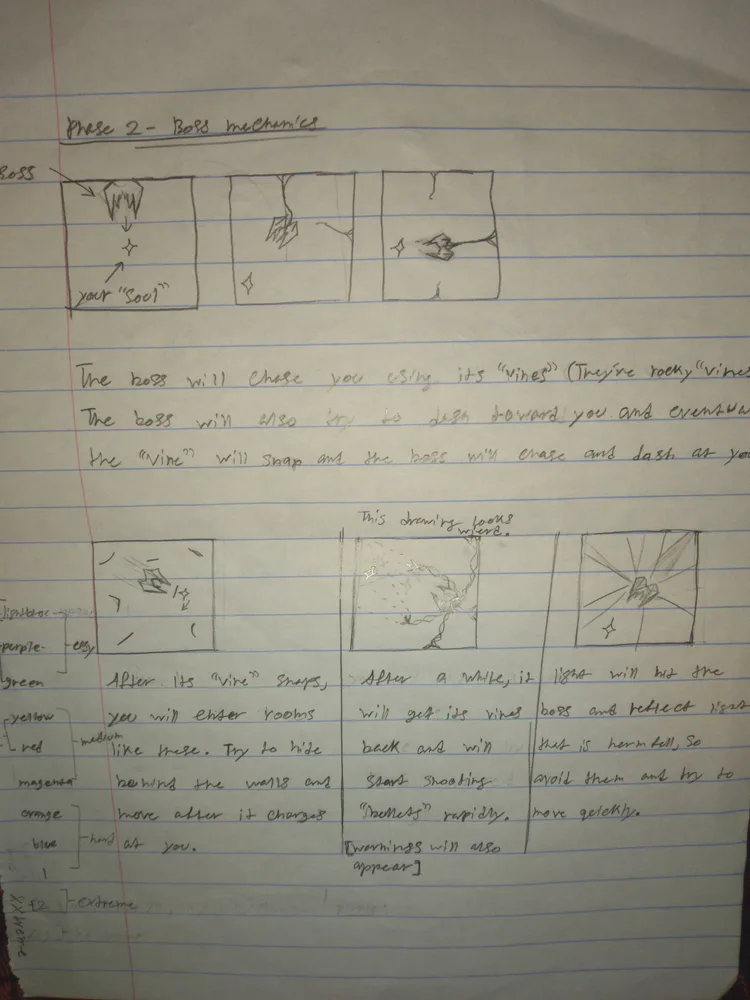 Phase 2 - Boss mechanics
Boss
your "Soul"
The boss will chase you using its "vines" (They're rocky "vines
The boss will also try to dash toward you and eventua
the "vine" will snap and the boss will chase and dash at you
This drawing looks
wierd.
After its "vine" snaps,
you will enter rooms
like these. Try to hide
behind the walls and
move after it charges
at you.
After a while, it
will get its vines
back and will
start shooting
"bullets" rapidly.
[warnings will also
appear]
light will hit the
boss and reflect light
that is harmfull, so
avoid them and try to
move quickly.
purple-
easy
green
yellow
red
medium
magenta
orange
hard
blue
extreme